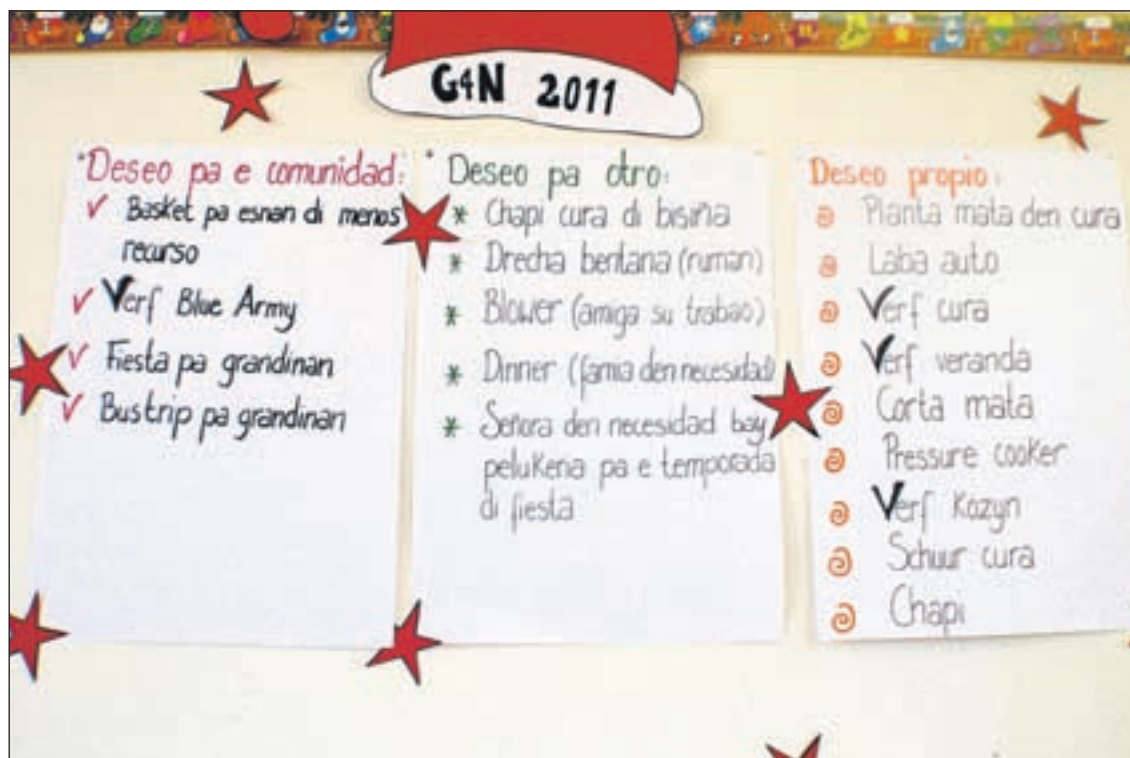 G4N 2011
"Deseo pa e comunidad:
Basket pa esnan di menos
recurso
Verf Blue Army
Fiesta pa grandinan
Bustrip pa grandinan
Deseo pa otro:
Chapi cura di bisiña
Drecha bentana (ruman)
Blower (amiga su trabao)
Dinner (famia den necesidad)
Señora den necesidad bay
pelukeria pa e temporada
di fiesta
Deseo propio:
Planta mata den cura
Laba auto
Verf cura
Verf veranda
Corta mata
Pressure cooker
Verf Kozyn
Schuur cura
Chapi